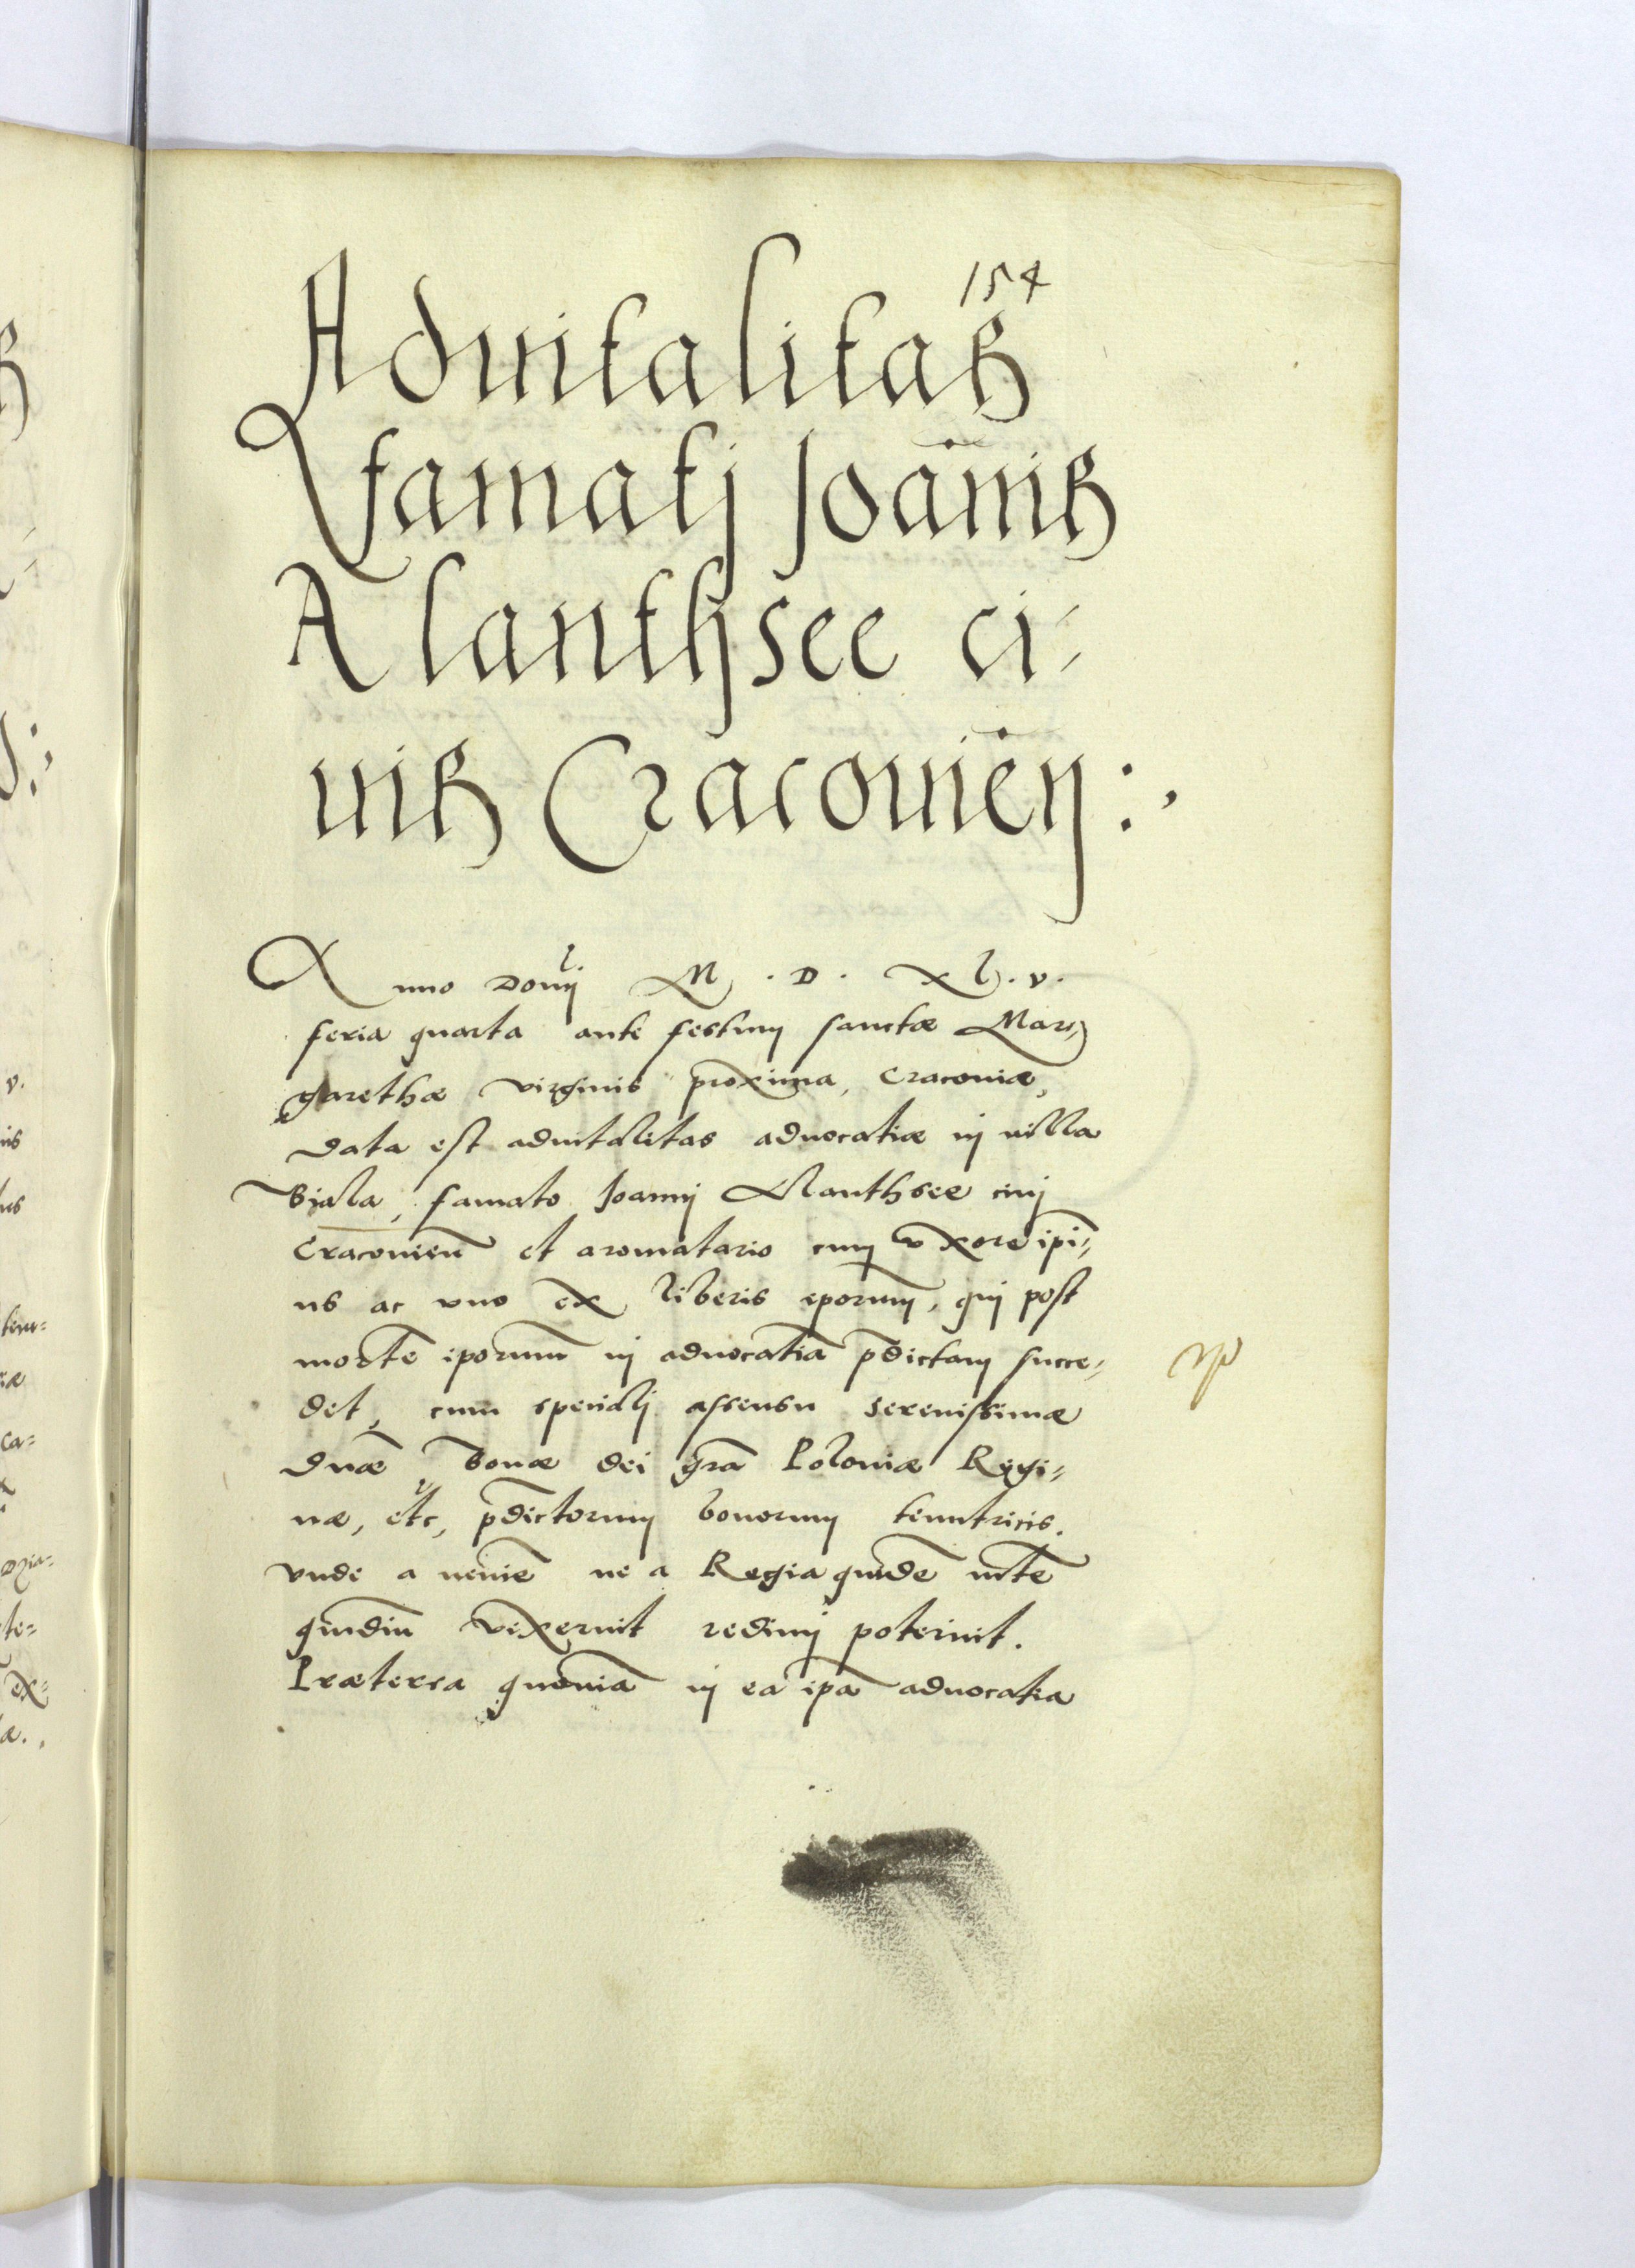 154
Aduitalitas
famatj Joānis
Alanthsee ci-
uis Cracouien̄ :,
Anno Dominj M . D . XL . v .
feria quarta ante festum sanctæ Mar-
garethæ virginis proxima, Cracoviæ,
data est aduitalitas aduocatiæ in uilla
Biala, famato Joannj Alanthsee ciuj
Cracouien̄ et aromatario cum vxore ipi-
us ac vno ex liberis eporum, qui post
mortē iporum in aduocatiā p̄dictam succe-
det, cum specialj assensu serenissimæ
dnæ Bonæ dei gra Poloniæ Regi-
næ, etc, p̄dictorum bonorum tenutricis.
vnde a nemīe ne a Regia quidē mte
quādiu vixerint redimj poterint.
Præterea quoniā in ea ipa aduocatia